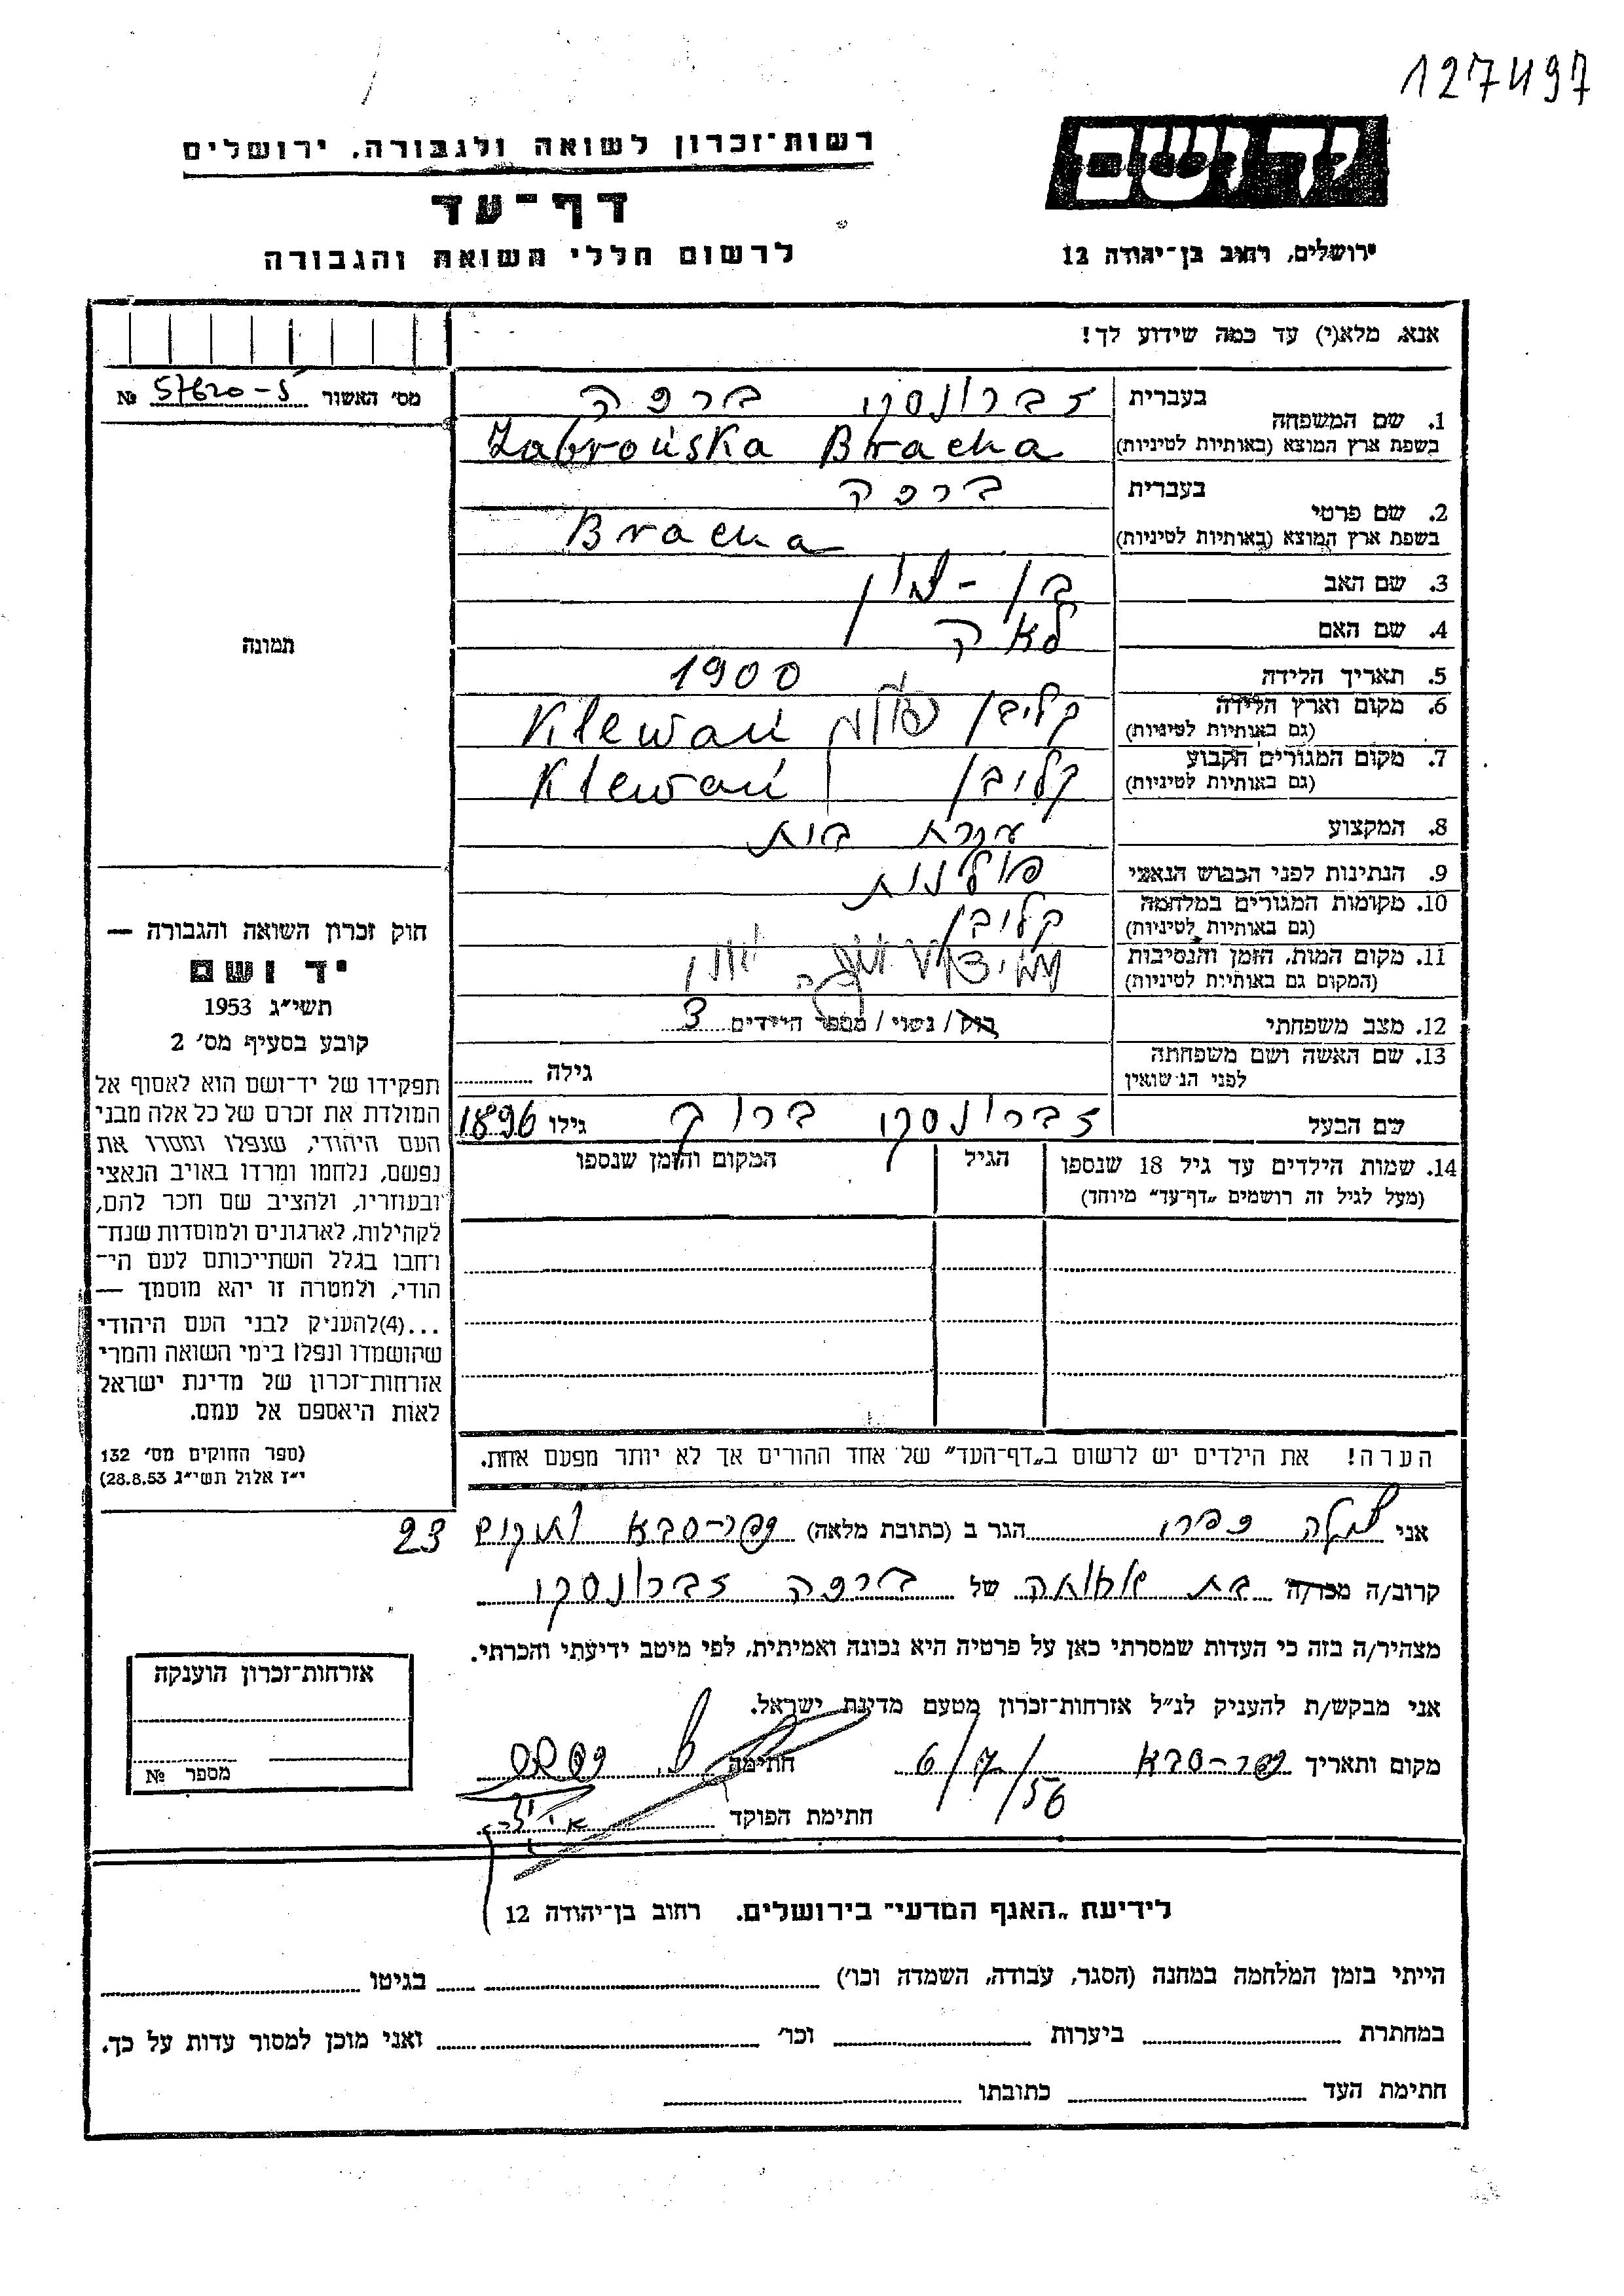 127497
יד ושם
רשות-זכרון לשואה ולגבורה, ירושלים
דף-עד
לרשום חללי השואה והגבורה
ירושלים, רחוב בן-יהודה 12
אנא, מלא(י) עד כמה שידוע לך!
מס' האשור 57620-5 №
1. שם המשפחה בעברית זברונסקי ברכה
בשפת ארץ המוצא (באותיות לטיניות) Zabrońska Bracha
2. שם פרטי בעברית ברכה
בשפת ארץ המוצא (באותיות לטיניות) Bracha
3. שם האב בן-ציון
4. שם האם לאה
5. תאריך הלידה 1900
6. מקום וארץ הלידה קליבן פולין Klewań
(גם באותיות לטיניות)
7. מקום המגורים הקבוע קליבן Klewań
(גם באותיות לטיניות)
8. המקצוע עקרת בית
9. הנתינות לפני הכבוש הנאצי פולנית
10. מקומות המגורים במלחמה קליבן
(גם באותיות לטיניות)
11. מקום המות, הזמן והנסיבות
(המקום גם באותיות לטיניות)
12. מצב משפחתי רוק / נשוי / מספר הילדים 3
13. שם האשה ושם משפחתה גילה
לפני הנישואין
שם הבעל זברונסקי ברוך גילו 1896
14. שמות הילדים עד גיל 18 שנספו הגיל המקום והזמן שנספו
(מעל לגיל זה רושמים „דף-עד" מיוחד)
הערה! את הילדים יש לרשום ב„דף-העד" של אחד ההורים אך לא יותר מפעם אחת.
תמונה
חוק זכרון השואה והגבורה —
יד ושם
תשי"ג 1953
קובע בסעיף מס' 2
תפקידו של יד-ושם הוא לאסוף אל
המולדת את זכרם של כל אלה מבני
העם היהודי, שנפלו ומסרו את
נפשם, נלחמו ומרדו באויב הנאצי
ובעוזריו, ולהציב שם וזכר להם,
לקהילות, לארגונים ולמוסדות שנח-
רבו בגלל השתייכותם לעם הי-
הודי, ולמטרה זו יהא מוסמך —
...(4)להעניק לבני העם היהודי
שהושמדו ונפלו בימי השואה והמרי
אזרחות-זכרון של מדינת ישראל
לאות היאספם אל עמם.
(ספר החוקים מס' 132
י"ז אלול תשי"ג 28.8.53)
אני הגר ב (כתובת מלאה) כפר-סבא 23
קרוב/ה מכר/ה בת של ברכה זברונסקי
מצהיר/ה בזה כי העדות שמסרתי כאן על פרטיה היא נכונה ואמיתית, לפי מיטב ידיעתי והכרתי.
אני מבקש/ת להעניק לנ"ל אזרחות-זכרון מטעם מדינת ישראל.
מקום ותאריך כפר-סבא 6/7/56 חתימה
חתימת הפוקד
אזרחות-זכרון הוענקה
מספר №
לידיעת „האגף המדעי" בירושלים. רחוב בן-יהודה 12
הייתי בזמן המלחמה במחנה (הסגר, עבודה, השמדה וכו') בגיטו
במחתרת ביערות וכו' ואני מוכן למסור עדות על כך.
חתימת העד כתובתו